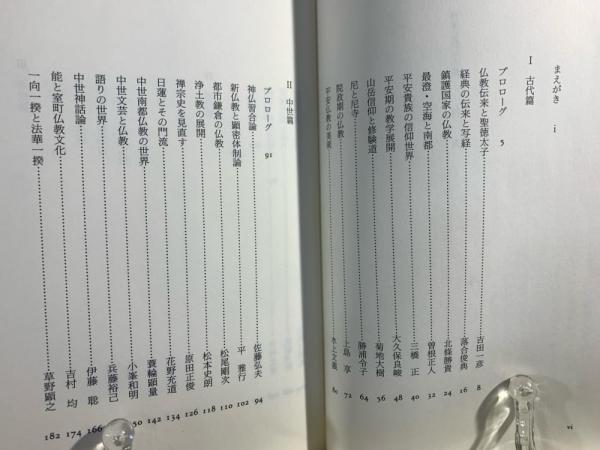 まえがき i
I 古代篇
プロローグ 5
仏教伝来と聖徳太子 吉田一彦 8
経典の伝来と写経 落合俊典 16
鎮護国家の仏教 北條勝貴 24
最澄・空海と南都 曽根正人 32
平安貴族の信仰世界 三橋 正 40
平安期の教学展開 大久保良峻 48
山岳信仰と修験道 菊地大樹 56
尼と尼寺 勝浦令子 64
院政期の仏教 上島 享 72
平安仏教の美術 水上文義 80
vi
II 中世篇
プロローグ 91
神仏習合論 佐藤弘夫 94
新仏教と顕密体制論 平 雅行 102
都市鎌倉の仏教 松尾剛次 110
浄土教の展開 松本史朗 118
禅宗史を見直す 原田正俊 126
日蓮とその門流 花野充道 134
中世南都仏教の世界 蓑輪顕量 142
中世文芸と仏教 小峯和明 50
語りの世界 兵藤裕己
中世神話論 伊藤 聡 166
能と室町仏教文化 吉村 均 174
一向一揆と法華一揆 草野顕之 182